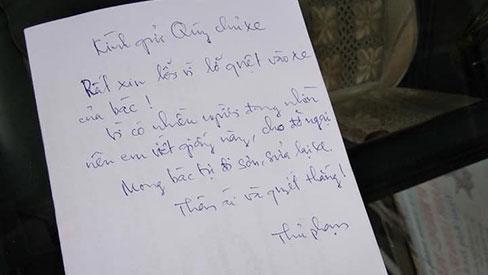 Kính gửi Quý chủ xe
Rất xin lỗi vì lỡ quệt vào xe
của bác!
Vì có nhiều người đang nhòm
nên em viết giấy này, cho đỡ ngại
Mong bác tự đi sơn, sửa lại xe.
Thân ái và quyết thắng!
Thủ phạm